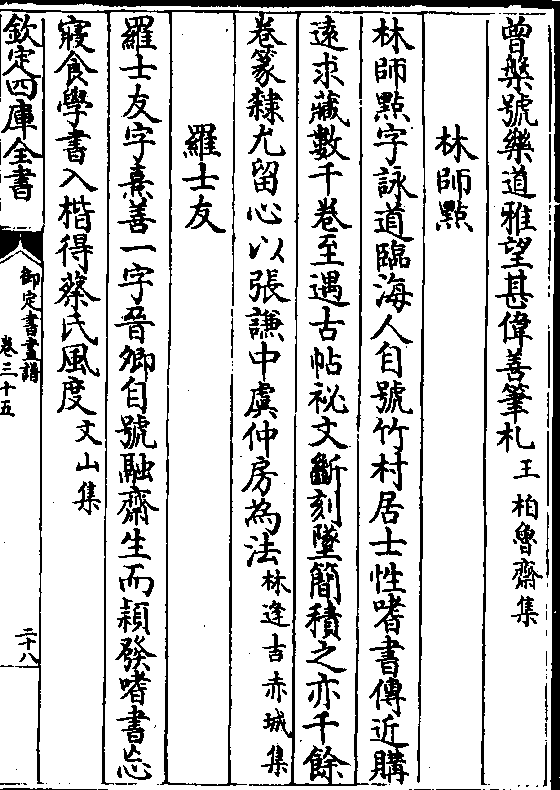 曾槃號樂道雅望甚偉善筆札王柏魯齋集
林師㸃
林師㸃字詠道臨海人自號竹村居士性嗜書傳近購
遠求藏數千卷至遇古帖祕文斷刻墜簡積之亦千餘
卷篆隸尤留心以張謙中虞仲房為法林逢吉赤城集
羅士友
羅士友字熹善一字晉卿自號融齋生而穎發嗜書忘
寢食學書入楷得蔡氏風度文山集
欽定四庫全書
御定書畫譜
卷三十五
二十八